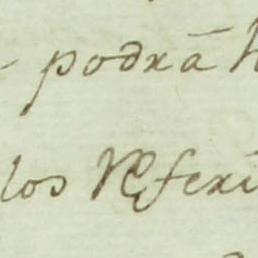 podrá
los Referi